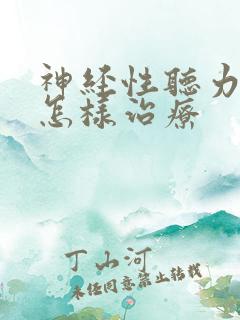 神经性聽力
怎樣治療
丁山河
未经同意禁止转载